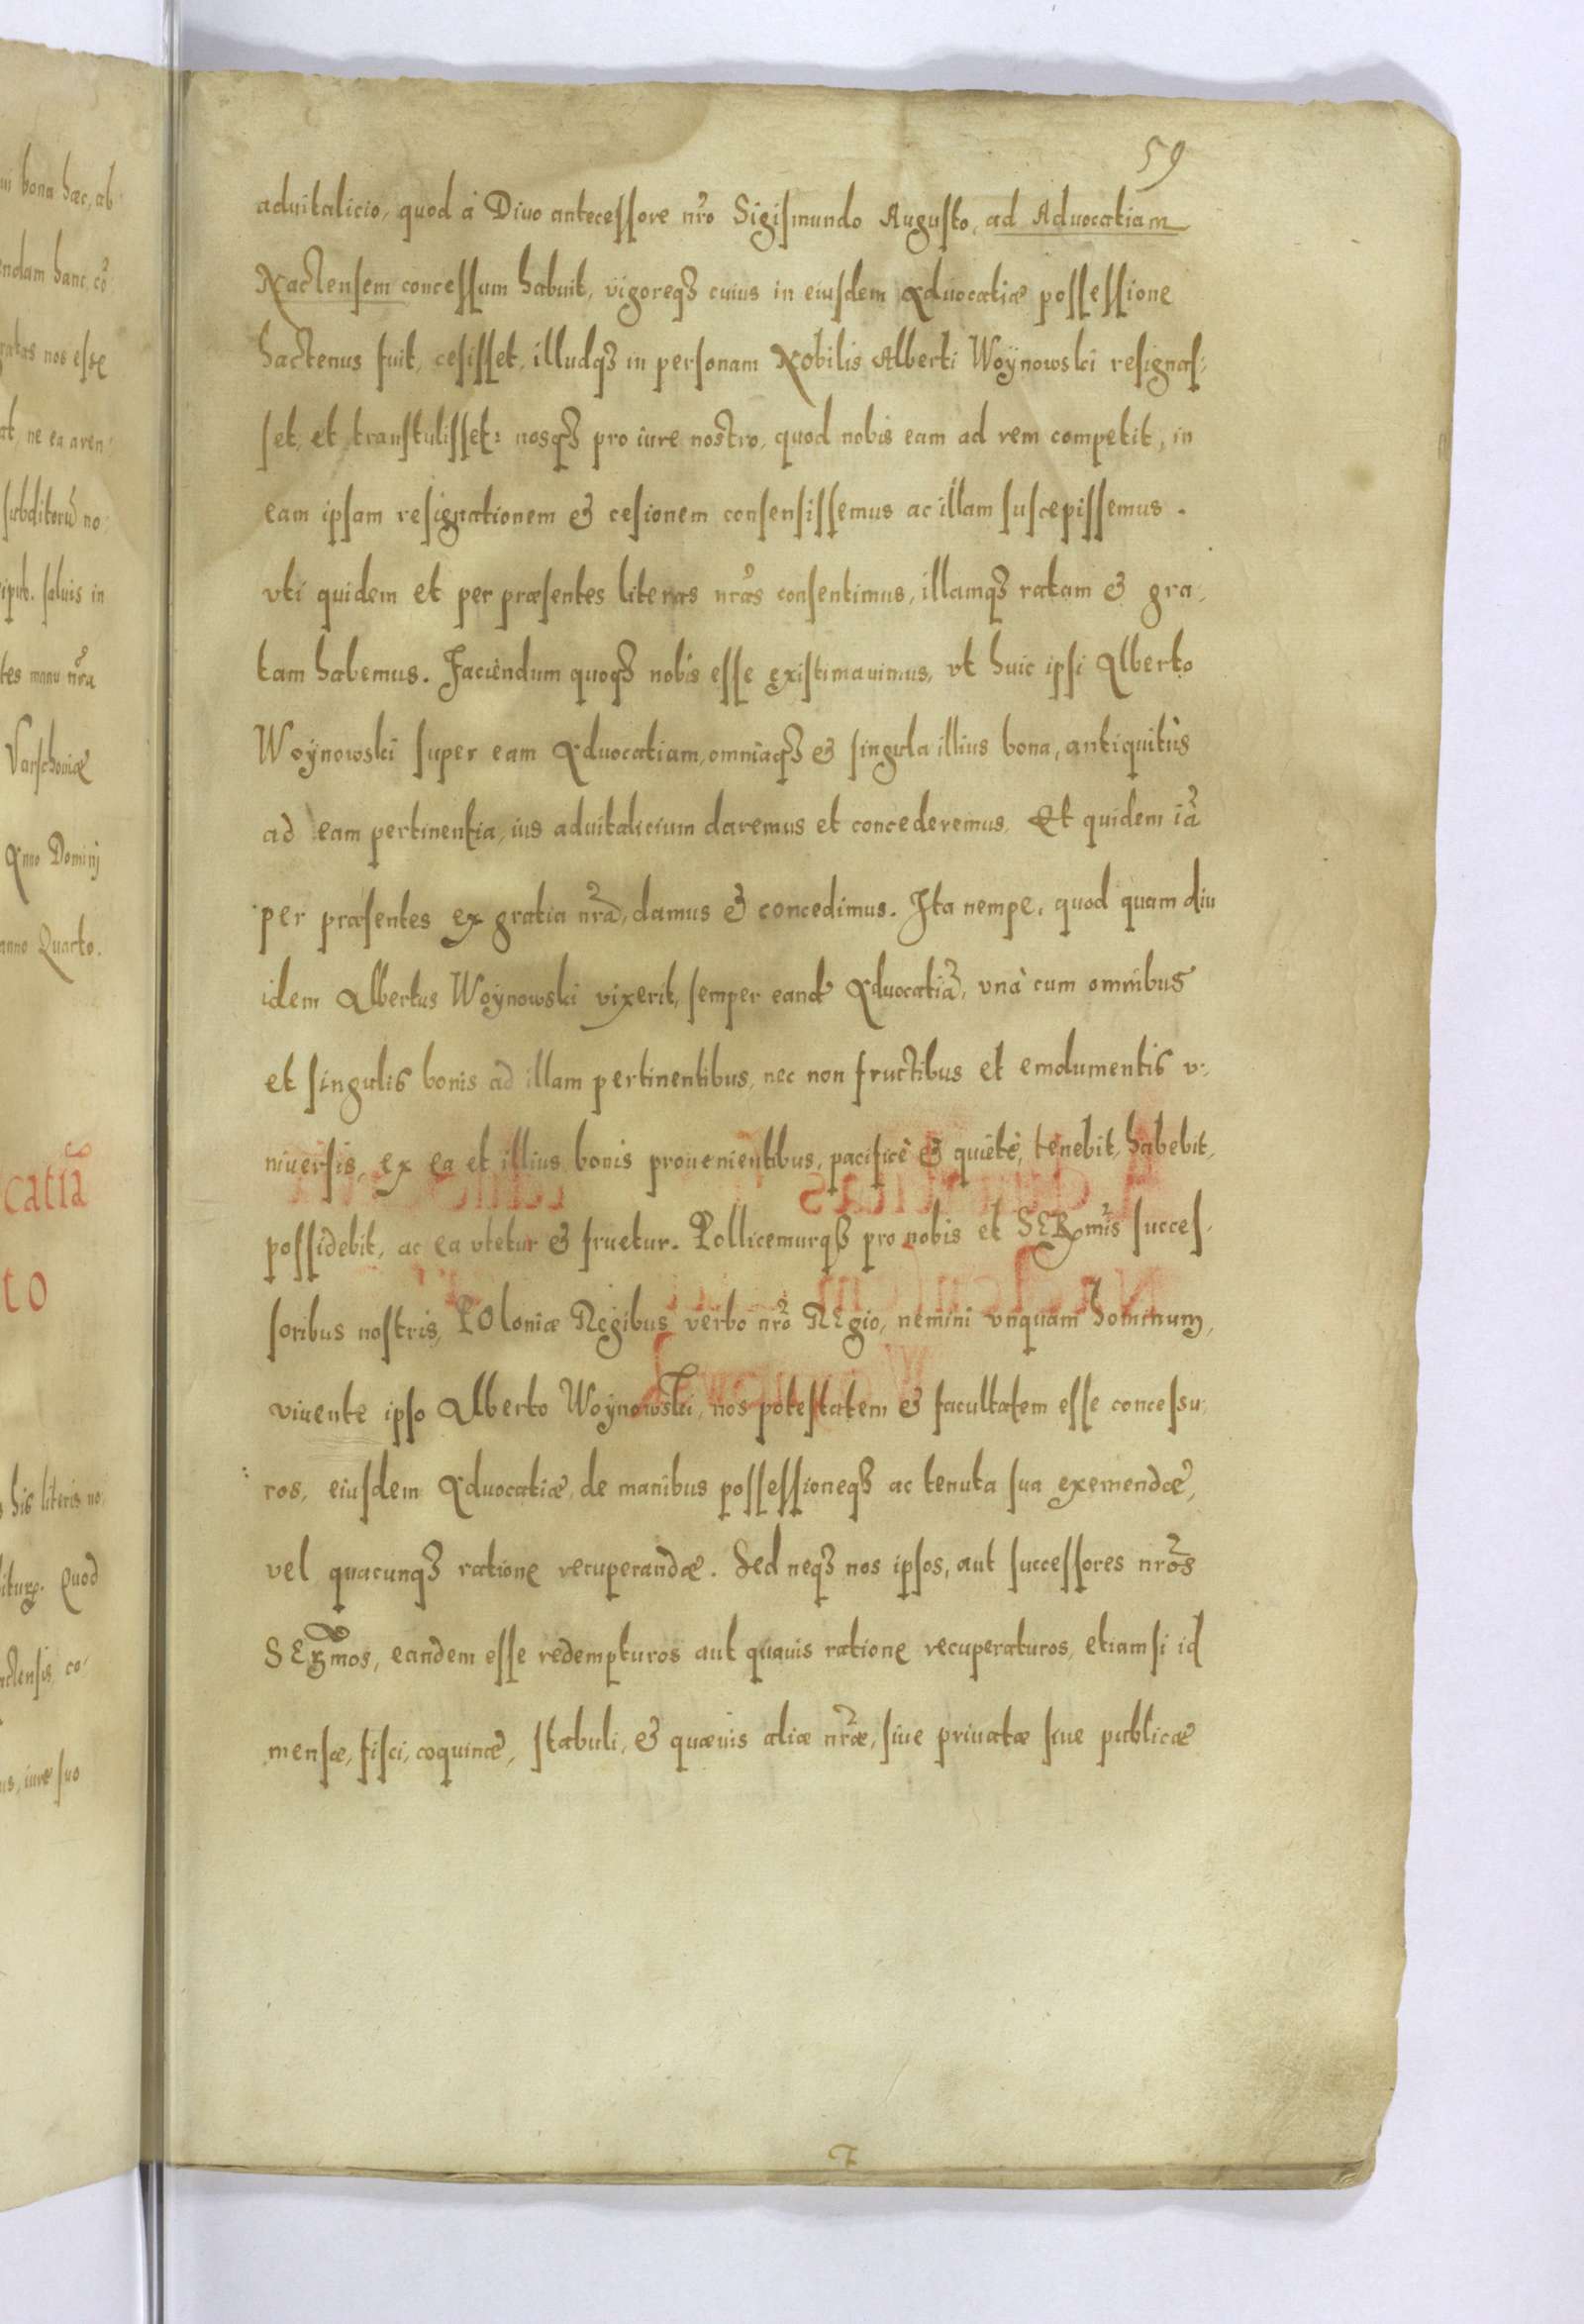 59
aduitalicio, quod à Diuo antecessore nr̃o Sigismundo Augusto, ad Aduocatiam
Nactensem concessum habuit, vigoreqꝫ cuius in eiusdem Aduocatiæ possessione
hactenus fuit, cesisset, illudqꝫ in personam Nobilis Alberti Woÿnowski resignas-
set, et transtulisset: nosqꝫ pro iure nostro, quod nobis eam ad rem competit, in
eam ipsam resignationem & cesionem consensissemus ac illam suscepissemus.
vti quidem et per præsentes literas nr̃as consentimus, illamqꝫ ratam & gra-
tam habemus. Faciendum quoqꝫ nobis esse existimauimus, vt huic ipsi Alberto
Woÿnowski super eam Aduocatiam, omniaqꝫ & singula illius bona, antiquitùs
ad eam pertinentia, ius aduitalicium daremus et concederemus. Et quidem iã
per præsentes ex gratia nr̃a, damus & concedimus. Ita nempe, quod quam diu
idem Albertus Woÿnowski vixerit, semper eand Aduocatiã, vnà cum omnibus
et singulis bonis ad illam pertinentibus, nec non fructibus et emolumentis v-
niuersis, ex ea et illius bonis prouenientibus, pacificè & quietè, tenebit, habebit,
possidebit, ac ea vtetur & fruetur. Pollicemurqꝫ pro nobis et SERmis succes-
soribus nostris, POloniæ REgibus verbo nr̃o REgio, nemini vnquam hominum,
viuente ipso Alberto Woÿnowski, nos potestatem & facultatem esse concessu-
ros, eiusdem Aduocatiæ, de manibus possessioneqꝫ ac tenuta sua exemendæ,
vel quacunqꝫ ratione recuperandæ. Sed neqꝫ nos ipsos, aut successores nr̃os
SERmos, eandem esse redempturos aut quauis ratione recuperaturos, etiamsi id
mensæ, fisci, coquinæ, stabuli, & quæuis aliæ nr̃æ, siue priuatæ siue publicæ